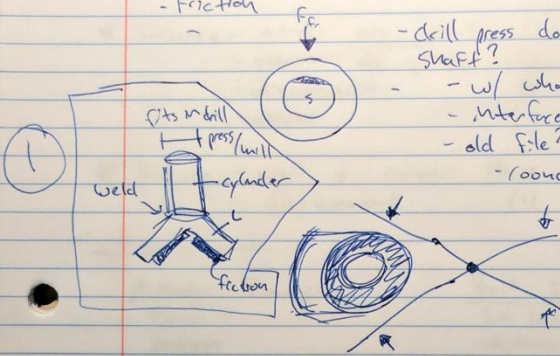 - Friction
-
F fr
- drill press do
shaft?
- w/ wha
- interface
- old file?
- roun
S
1
fits in drill
press/mill
weld
cylinder
L
friction